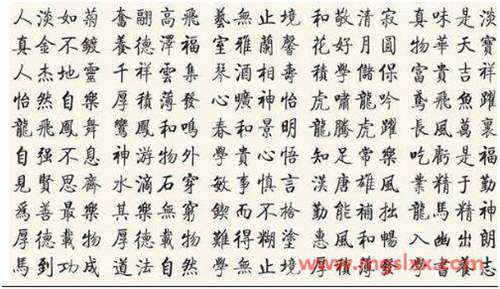 人淡如菊 奮翮高飛 藝無止境 和敬清寂 真味是淡
真金不鍍 養德澤福 室雅蘭馨 花好月圓 物華天寶
人杰地靈 千祥雲集 琴酒相壽 學儲保 富貴吉祥
怡然自樂 厚積薄發 心曠神怡 虎嘯龍吟 鳶飛魚躍
龍飛鳳舞 鸞鳳和鳴 春和景明 龍騰虎躍 長風萬裏
自强不息 神游物外 學貴心悟 知足常樂 吃虧是福
見賢思齊 水滴石穿 敏事慎言 漢唐雄風 業精于勤
爲善最樂 其樂無窮 鍥而不捨 勤能補拙 龍馬精神
厚德載物 厚德載物 難得糊塗 惠風和暢 入幽出朗
馬到功成 道法自然 學無止境 厚積薄發 學書
www.mgslxx.com